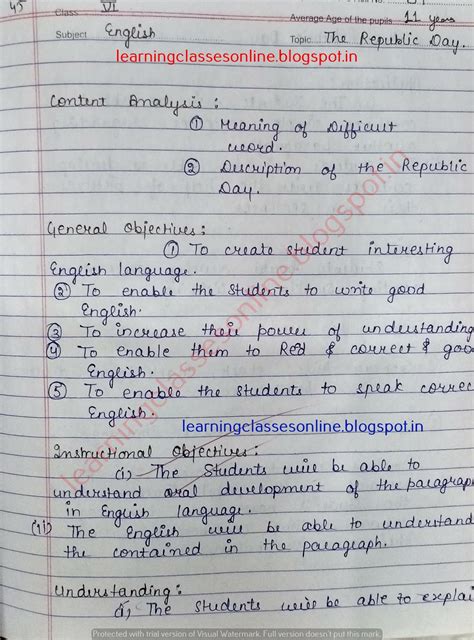 45
Class VI
Average Age of the pupils 11 years
Subject English
Topic The Republic Day.
learningclassesonline.blogspot.in
Content Analysis :
① Meaning of Difficult
word.
② Description of the Republic
Day.
General Objectives :
① To create student interesting
English language.
② To enable the students to write good
English.
③ To increase their power of understanding
④ To enable them to Red & correct & good
English.
⑤ To enable the students to speak correc
English.
learningclassesonline.blogspot.in
Instructional Objectives :
(i) The Students will be able to
understand oral development of the paragrap
in English language.
(ii) The English will be able to understand
the contained in the paragraph.
Understanding :
(i) The students will be able to explai
learningclassesonline.blogspot.in
Protected with trial version of Visual Watermark. Full version doesn't put this mark.